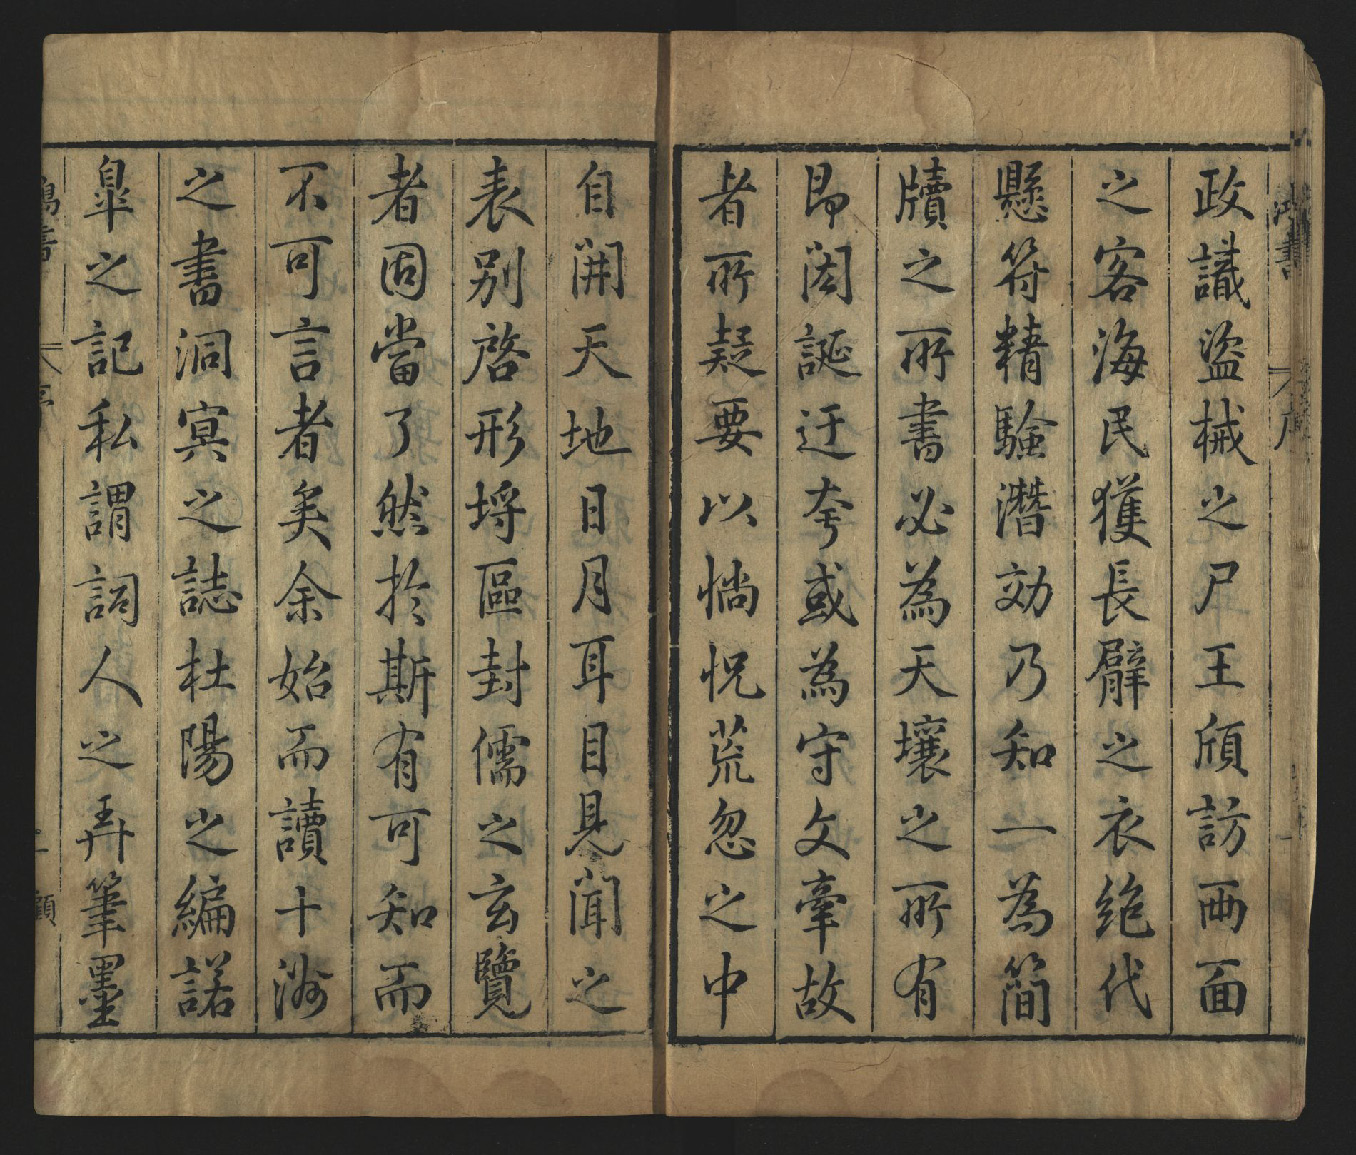 政識盜械之尸王頎訪兩面
之客海民獲長臂之衣絶代
懸符精驗潛効乃知一為簡
牘之所書必為天壤之所有
昂閎誕迂夸或為守文牽故
者所疑要以惝怳荒忽之中
自開天地日月耳目見聞之
表别啓形埒區封儒之玄覽
者固當了然扵斯有可知而
不可言者矣余始而讀十洲
之書洞冥之誌杜陽之編諾
臯之記私謂詞人之弄筆墨